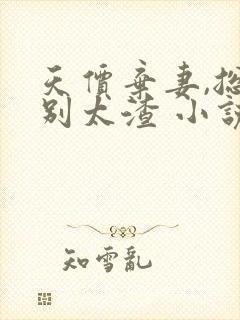 天價棄妻,總
別太渣 小說
知雪亂